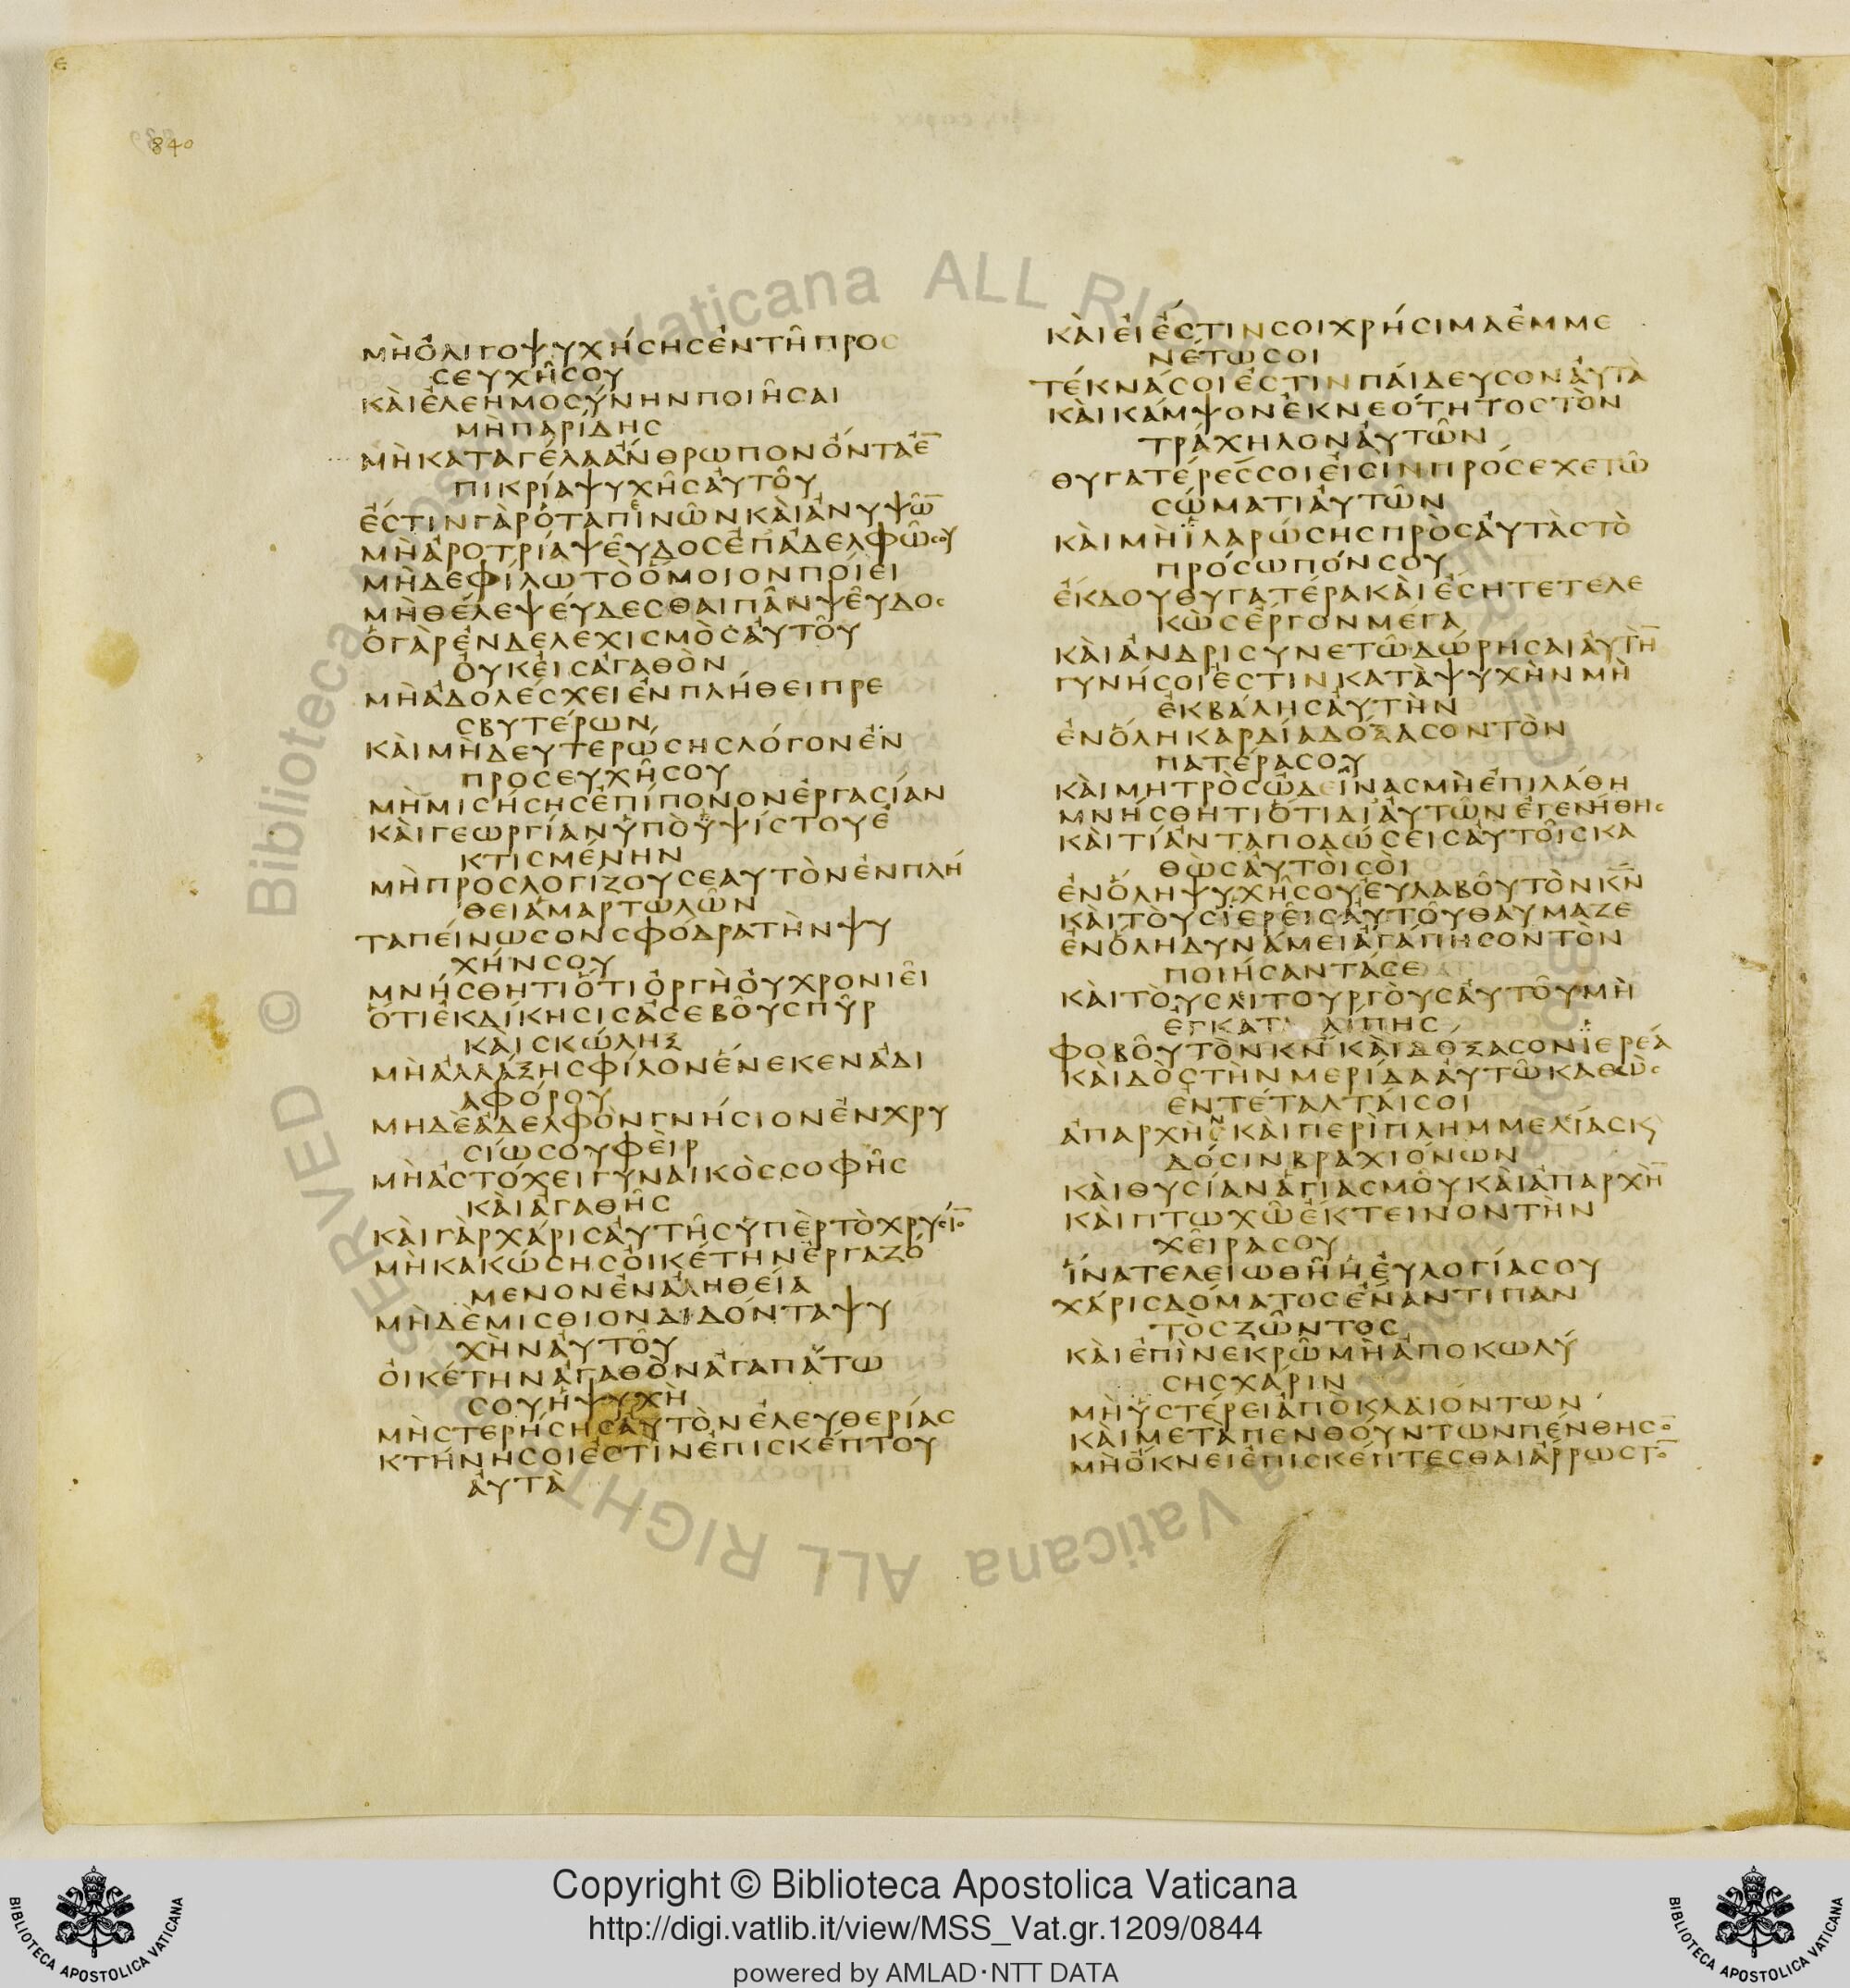 840
ΜῊὈ̓ΛΙΓΟΨΥΧΉϹΗϹἘΝΤΗ͂ΠΡΟϹ
ϹΕΥΧΗ͂ϹΟΥ
ΚᾺΙἘΛΕΗΜΟϹΎΝΗΝΠΟΙΗ͂ϹΑΙ
ΜῊΠΑΡΊΔΗϹ
ΜῊΚΑΤΑΓΈΛΑἌΝΘΡΩΠΟΝὌΝΤΑἘ̅
ΠΙΚΡΊΑΨΥΧΗ͂ϹἈΥΤΟ͂Υ
ἜϹΤΙΝΓᾺΡὉΤΑΠΙΝΩ͂ΝΚᾺΙἈΝΥΨΩ͂̅
ΜῊἈΡΟΤΡΊΑΨΕ͂ΥΔΟϹἘΠἈΔΕΛΦΩ͂ϹΟΥ
ΜῊΔΕΦΊΛΩΤῸὍΜΟΙΟΝΠΟΊΕΙ
ΜῊΘΈΛΕΨΈΥΔΕϹΘΑΙΠΑ͂ΝΨΕ͂ΥΔΟϹ
ὉΓᾺΡἘΝΔΕΛΕΧΙϹΜῸϹἈΥΤΟ͂Υ
ὈΥΚἘΙϹἈΓΑΘῸΝ
ΜῊἈΔΟΛΈϹΧΕΙἘΝΠΛΉΘΕΙΠΡΕ
ϹΒΥΤΈΡΩΝ
ΚᾺΙΜῊΔΕΥΤΕΡΏϹΗϹΛΌΓΟΝἘΝ
ΠΡΟϹΕΥΧΗ͂ϹΟΥ
ΜῊΜΙϹΉϹΗϹἘΠΊΠΟΝΟΝἘΡΓΑϹΊΑΝ
ΚᾺΙΓΕΩΡΓΊΑΝὙΠῸὙΨΊϹΤΟΥἘ
ΚΤΙϹΜΈΝΗΝ
ΜῊΠΡΟϹΛΟΓΊΖΟΥϹΕΑΥΤῸΝἘΝΠΛΉ
ΘΕΙἉΜΑΡΤΩΛΩ͂Ν
ΤΑΠΕΊΝΩϹΟΝϹΦΌΔΡΑΤῊΝΨΥ
ΧΉΝϹΟΥ
ΜΝΉϹΘΗΤΙὍΤΙὈΡΓῊὈΥΧΡΟΝΙΕ͂Ι
ὍΤΙἘΚΔΊΚΗϹΙϹἈϹΕΒΟ͂ΥϹΠΥ͂Ρ
ΚᾺΙϹΚΏΛΗΞ
ΜῊἈΛΛΆΞΗϹΦΊΛΟΝἝΝΕΚΕΝἈΔΙ
ΑΦΌΡΟΥ
ΜΗΔῈἈΔΕΛΦῸΝΓΝΉϹΙΟΝἘΝΧΡΥ
ϹΊΩϹΟΥΦῈΙΡ
ΜῊἈϹΤΌΧΕΙΓΥΝΑΙΚῸϹϹΟΦΗ͂Ϲ
ΚᾺΙἈΓΑΘΗ͂Ϲ
ΚᾺΙΓᾺΡΧΆΡΙϹἈΥΤΗ͂ϹὙΠῈΡΤῸΧΡΥϹΊΟ̅
ΜῊΚΑΚΏϹΗϹὈΙΚΈΤΗΝἘΡΓΑΖΌ
ΜΕΝΟΝἘΝἈΛΗΘΕΊΑ
ΜῊΔῈΜΙϹΘΙΟΝΔΙΔΌΝΤΑΨΥ
ΧῊΝἈΥΤΟ͂Υ
ὈΙΚΈΤΗΝἈΓΑΘῸΝἈΓΑΠΆΤΩ
ϹΟΥἩΨΥΧῊ
ΜῊϹΤΕΡΉϹΗϹἈΥΤῸΝἘΛΕΥΘΕΡΊΑϹ
ΚΤΉΝΗϹΟΙἘϹΤῚΝἘΠΙϹΚΈΠΤΟΥ
ἈΥΤᾺ
ΚᾺΙἘΙἜϹΤΙΝϹΟΙΧΡΉϹΙΜΑἘΜΜΕ
ΝΈΤΩϹΟΙ
ΤΈΚΝΆϹΟΙἘϹΤΙΝΠΆΙΔΕΥϹΟΝἈΥΤᾺ
ΚᾺΙΚΆΜΨΟΝἘΚΝΕΌΤΗΤΟϹΤῸΝ
ΤΡΆΧΗΛΟΝἈΥΤΩ͂Ν
ΘΥΓΑΤΈΡΕϹϹΟΙἘΙϹΙΝΠΡΌϹΕΧΕΤΩ͂
ϹΏΜΑΤΙἈΥΤΩ͂Ν
ΚᾺΙΜῊἹΛΑΡΏϹΗϹΠΡῸϹἈΥΤᾺϹΤῸ
ΠΡΌϹΩΠΌΝϹΟΥ
ἜΚΔΟΥΘΥΓΑΤΈΡΑΚᾺΙἜϹΗΤΕΤΕΛΕ
ΚῺϹἜΡΓΟΝΜΈΓΑ
ΚᾺΙἈΝΔΡΙϹΥΝΕΤΩ͂ΔΏΡΗϹΑΙἈΥΤῊ̅
ΓΥΝΉϹΟΙἘϹΤΙΝΚΑΤᾺΨΥΧῊΝΜῊ
ἘΚΒΆΛΗϹἈΥΤῊΝ
ἘΝὍΛΗΚΑΡΔΊΑΔΌΞΑϹΟΝΤῸΝ
ΠΑΤΈΡΑϹΟΥ
ΚᾺΙΜΗΤΡῸϹὨΔΕΙ͂ΝΑϹΜῊἘΠΙΛΆΘΗ
ΜΝΉϹΘΗΤΙὍΤΙΔΙἈΥΤΩ͂ΝἘΓΕΝΉΘΗϹ
ΚᾺΙΤΊἈΝΤΑΠΟΔΏϹΕΙϹἈΥΤΟ͂ΙϹΚΑ
ΘῺϹἈΥΤῸΙϹῸΙ
ἘΝὍΛΗΨΥΧΗ͂ϹΟΥἘΥΛΑΒΟ͂ΥΤῸΝΚ̅Ν̅
ΚᾺΙΤῸΥϹἹΕΡΕ͂ΙϹἈΥΤΟ͂ΥΘΑΥΜΑΖΕ
ἘΝὍΛΗΔΥΝΆΜΕΙἈΓΆΠΗϹΟΝΤῸΝ
ΠΟΙΉϹΑΝΤΆϹΕ
ΚᾺΙΤῸΥϹΛΙΤΟΥΡΓῸΥϹἈΥΤΟ͂ΥΜῊ
ἘΓΚΑΤΑΛΊΠΗϹ
ΦΟΒΟ͂ΥΤῸΝΚ̅Ν̅ΚᾺΙΔΌΞΑϹΟΝἹΕΡΈΑ
ΚᾺΙΔῸϹΤῊΝΜΕΡΊΔΑἈΥΤΩ͂ΚΑΘῺϹ
ΕΝΤΈΤΑΛΤΆΙϹΟΙ
ἈΠΑΡΧῊΝΚᾺΙΠΕΡῚΠΛΗΜΜΕΛΊΑϹΚϗ
ΔΌϹΙΝΒΡΑΧΙΌΝΩΝ
ΚᾺΙΘΥϹΊΑΝἉΓΙΑϹΜΟ͂ΥΚᾺΙἈΠΑΡΧῊ̅
ΚᾺΙΠΤΩΧΩ͂ἜΚΤΕΙΝΟΝΤῊΝ
ΧΕ͂ΙΡΑϹΟΥ
ἽΝΑΤΕΛΕΙΩΘΗ͂ἩἘΥΛΟΓΊΑϹΟΥ
ΧΆΡΙϹΔΌΜΑΤΟϹἜΝΑΝΤΙΠΑΝ
ΤῸϹΖΩ͂ΝΤΟϹ
ΚᾺΙἘΠῚΝΕΚΡΩ͂ΜῊἈΠΟΚΩΛΎ
ϹΗϹΧΆΡΙΝ
ΜῊὙϹΤΈΡΕΙἈΠῸΚΛΑΙΌΝΤΩΝ
ΚᾺΙΜΕΤᾺΠΕΝΘΟΎΝΤΩΝΠΈΝΘΗϹΟ̅
ΜῊὌΚΝΕΙἘΠΙϹΚΈΠΤΕϹΘΑΙἌΡΡΩϹΤΟ̅
Copyright © Biblioteca Apostolica Vaticana
http://digi.vatlib.it/view/MSS_Vat.gr.1209/0844
powered by AMLAD·NTT DATA
BIBLIOTECA APOSTOLICA VATICANA
BIBLIOTECA APOSTOLICA VATICANA